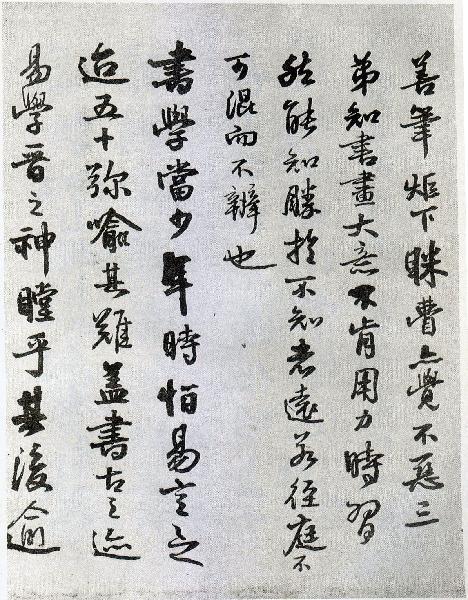 善筆炬下眯亦覺不惡三
弟知書畫大意不肯用力時習
然能知勝於不知者遠若徑庭不
可混而不辨也
書學當少年時怕易言之
迨五十弥喻其難蓋書古之迹
易學晋之神瞠乎其後逾